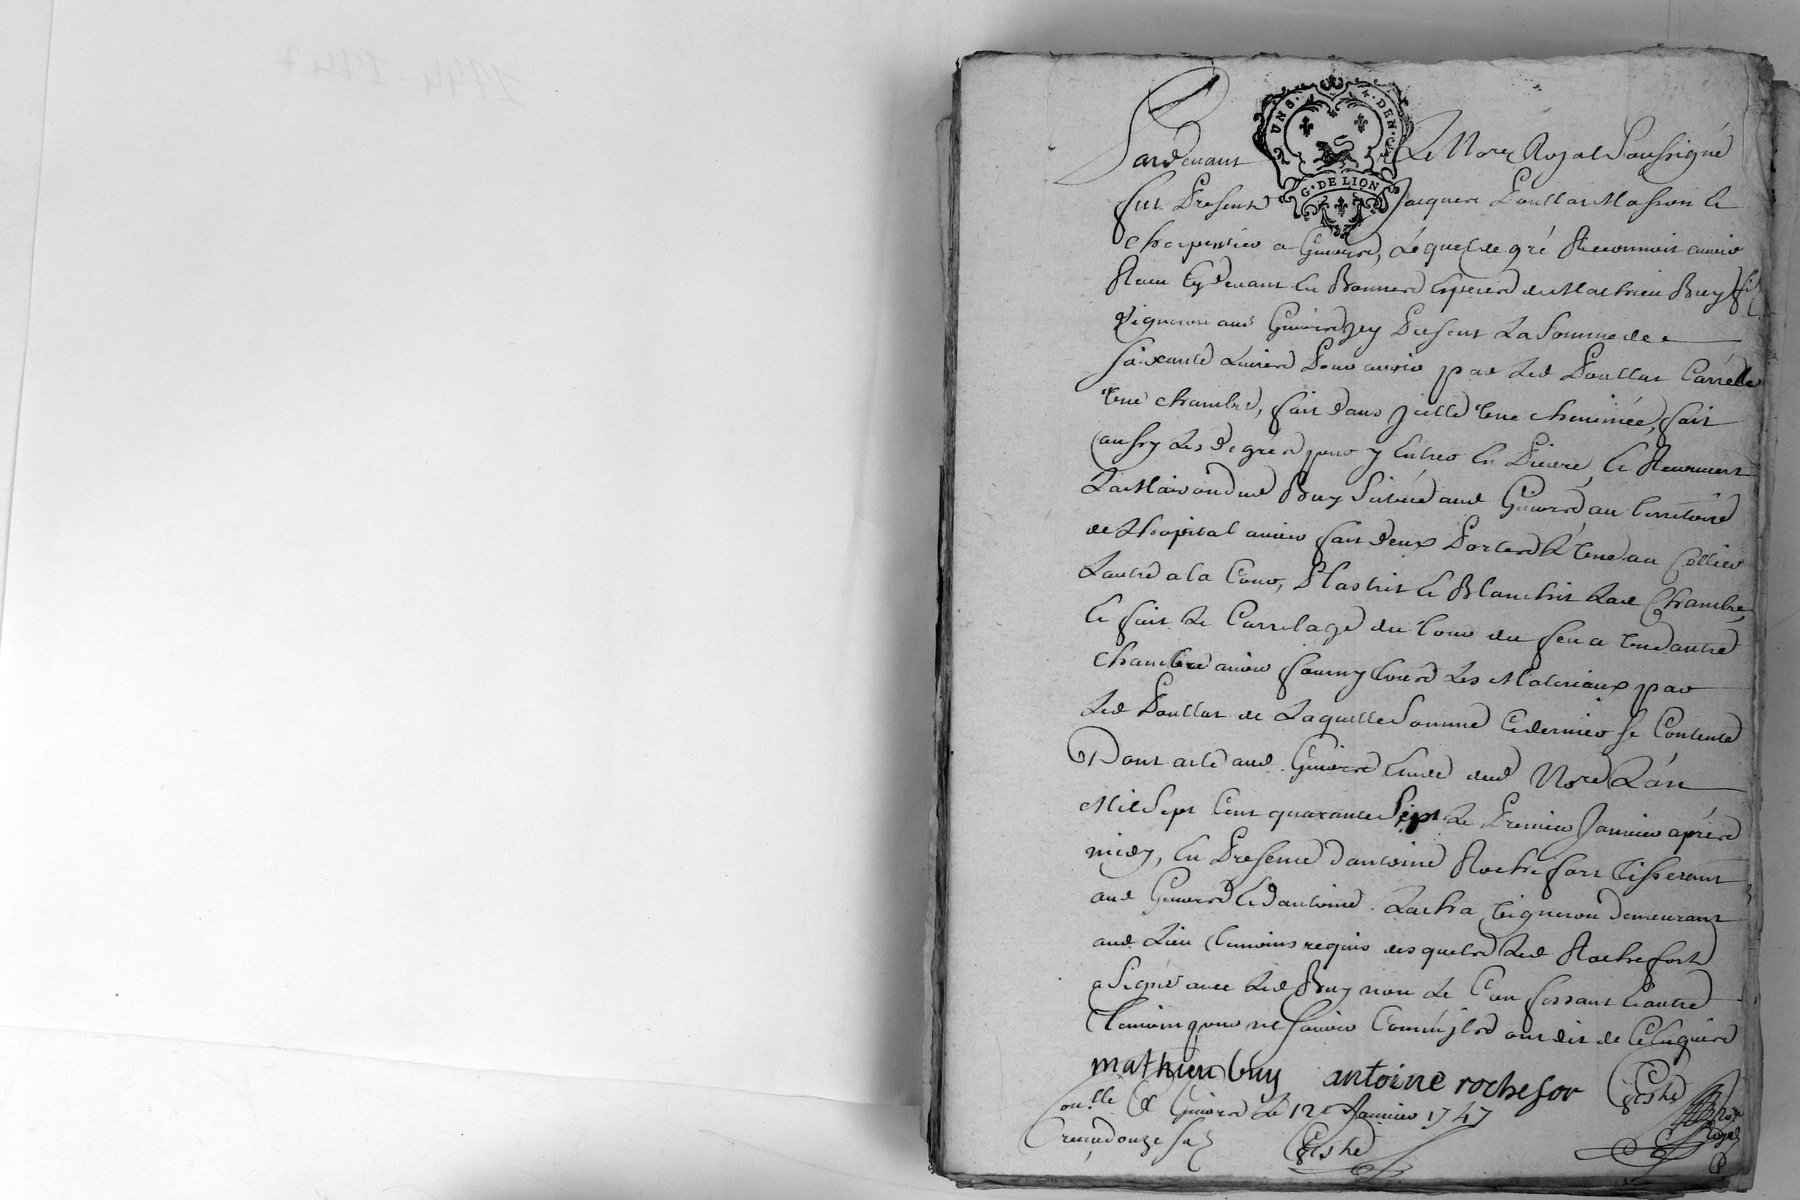 1744-1747
UNS. 4. DEN.
G. DE LION
Pardevant Le Nore Royal Soussigné
fut Present Jacques Poullat Masson Et
Charpentier a Givors, Lequel de gré Reconnoit avoir
Receu Cy devant En Bonnes Especes de Mathieu Buy fils
Vigneron aud Givors Jcy Present La Somme de
soixante Livres Pour avoir par Led Poullat Carrelé
Une chambre, fait dans Jcelle Une cheminée, fait
aussy Les degrés pour y Entrer En Pierre, le
La Maison dud Buy Scituée aud Givors au territoire
de Lhopital avoir fait deux Portes L'Une au Cellier
Lautre a la Cour, Plastrit Et Blanchit Lad Chambre,
Et fait Le Carrelage du tour du feu a Une autre
Chambre avoir fourny tous Les Materiaux par
Led Poullat de Laquelle Somme Ce dernier se Contente
Dont acte aud Givors Etude dud Nore L'an
Mil Sept Cent quarante Sept Le Premier Janvier après
midy, En Presence d'antoine Rochefort tisserant
aud Givors Et d'antoine Vigneron demeurant
aud Lieu temoins requis desquels Led Rochefort
a Signé avec Led Buy non Le Confessant Et autre
temoin pour ne sçavoir Comme Jls ont dit de Ce Enquis
mathieu buy antoine rochefor
Conlle a Givors Le 12e Janvier 1747
Receu douze sols